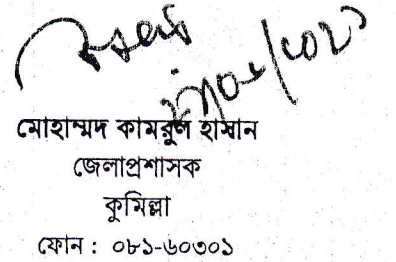 মোহাম্মদ কামরুল হাসান
জেলাপ্রশাসক
কুমিল্লা
ফোন : ০৮১-৬০৩০১